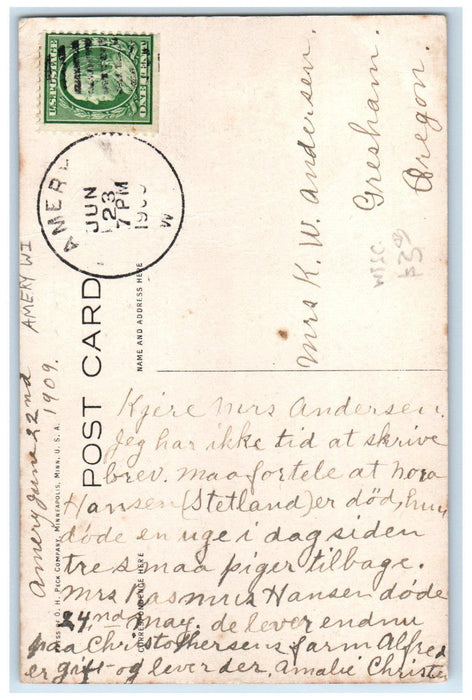 U.S. POSTAGE
ONE CENT ONE
AMERY
JUN
23
7 PM
1909
Mrs K. W. Andersen.
Gresham.
Oregon.
WISC
POST CARD
NAME AND ADDRESS HERE
CORRESPONDENCE HERE
O. H. PECK COMPANY, MINNEAPOLIS, MINN. U. S. A.
AMERY WI
Amery June 22nd
1909.
Kjere Mrs Andersen.
Jeg har ikke tid at skrive
brev. maa fortele at nora
Hansen (Stetland) er död, hun
döde en uge i dag siden
tre smaa piger tilbage.
Mrs Rasmus Hansen döde
24nd may. de lever endnu
paa Christophersens farm Alfred
er gift og lever der, Amalie Christe